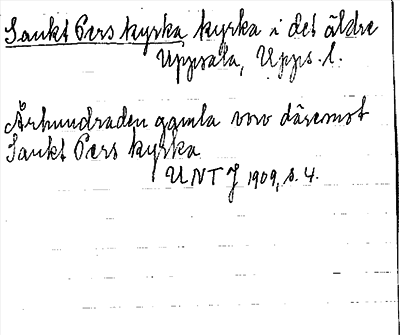 Sankt Pers kyrka kyrka i det äldre
Uppsala, Upps. l.
Århundraden gamla voro däremot
Sankt Pers kyrka
UNT J 1909, s. 4.